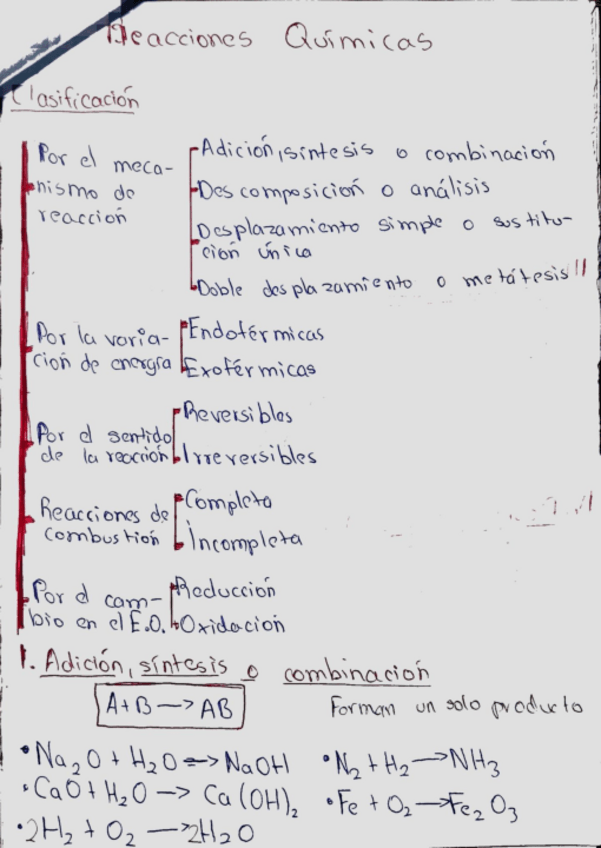 Reacciones Químicas
Clasificación
Por el meca-
nismo de
reacción
Adición, síntesis o combinación
Descomposición o análisis
Desplazamiento simple o sustitu-
ción única
Doble desplazamiento o metátesis
Por la varia-
ción de energía
Endotérmicas
Exotérmicas
Por el sentido
de la reacción
Reversibles
Irreversibles
Reacciones de
combustión
Completa
Incompleta
Por el cam-
bio en el E.O.
Reducción
Oxidación
1. Adición, síntesis o combinación
A+B → AB
Forman un solo producto
• Na₂O + H₂O → NaOH
• N₂ + H₂ → NH₃
• CaO + H₂O → Ca(OH)₂
• Fe + O₂ → Fe₂O₃
• 2H₂ + O₂ → 2H₂O